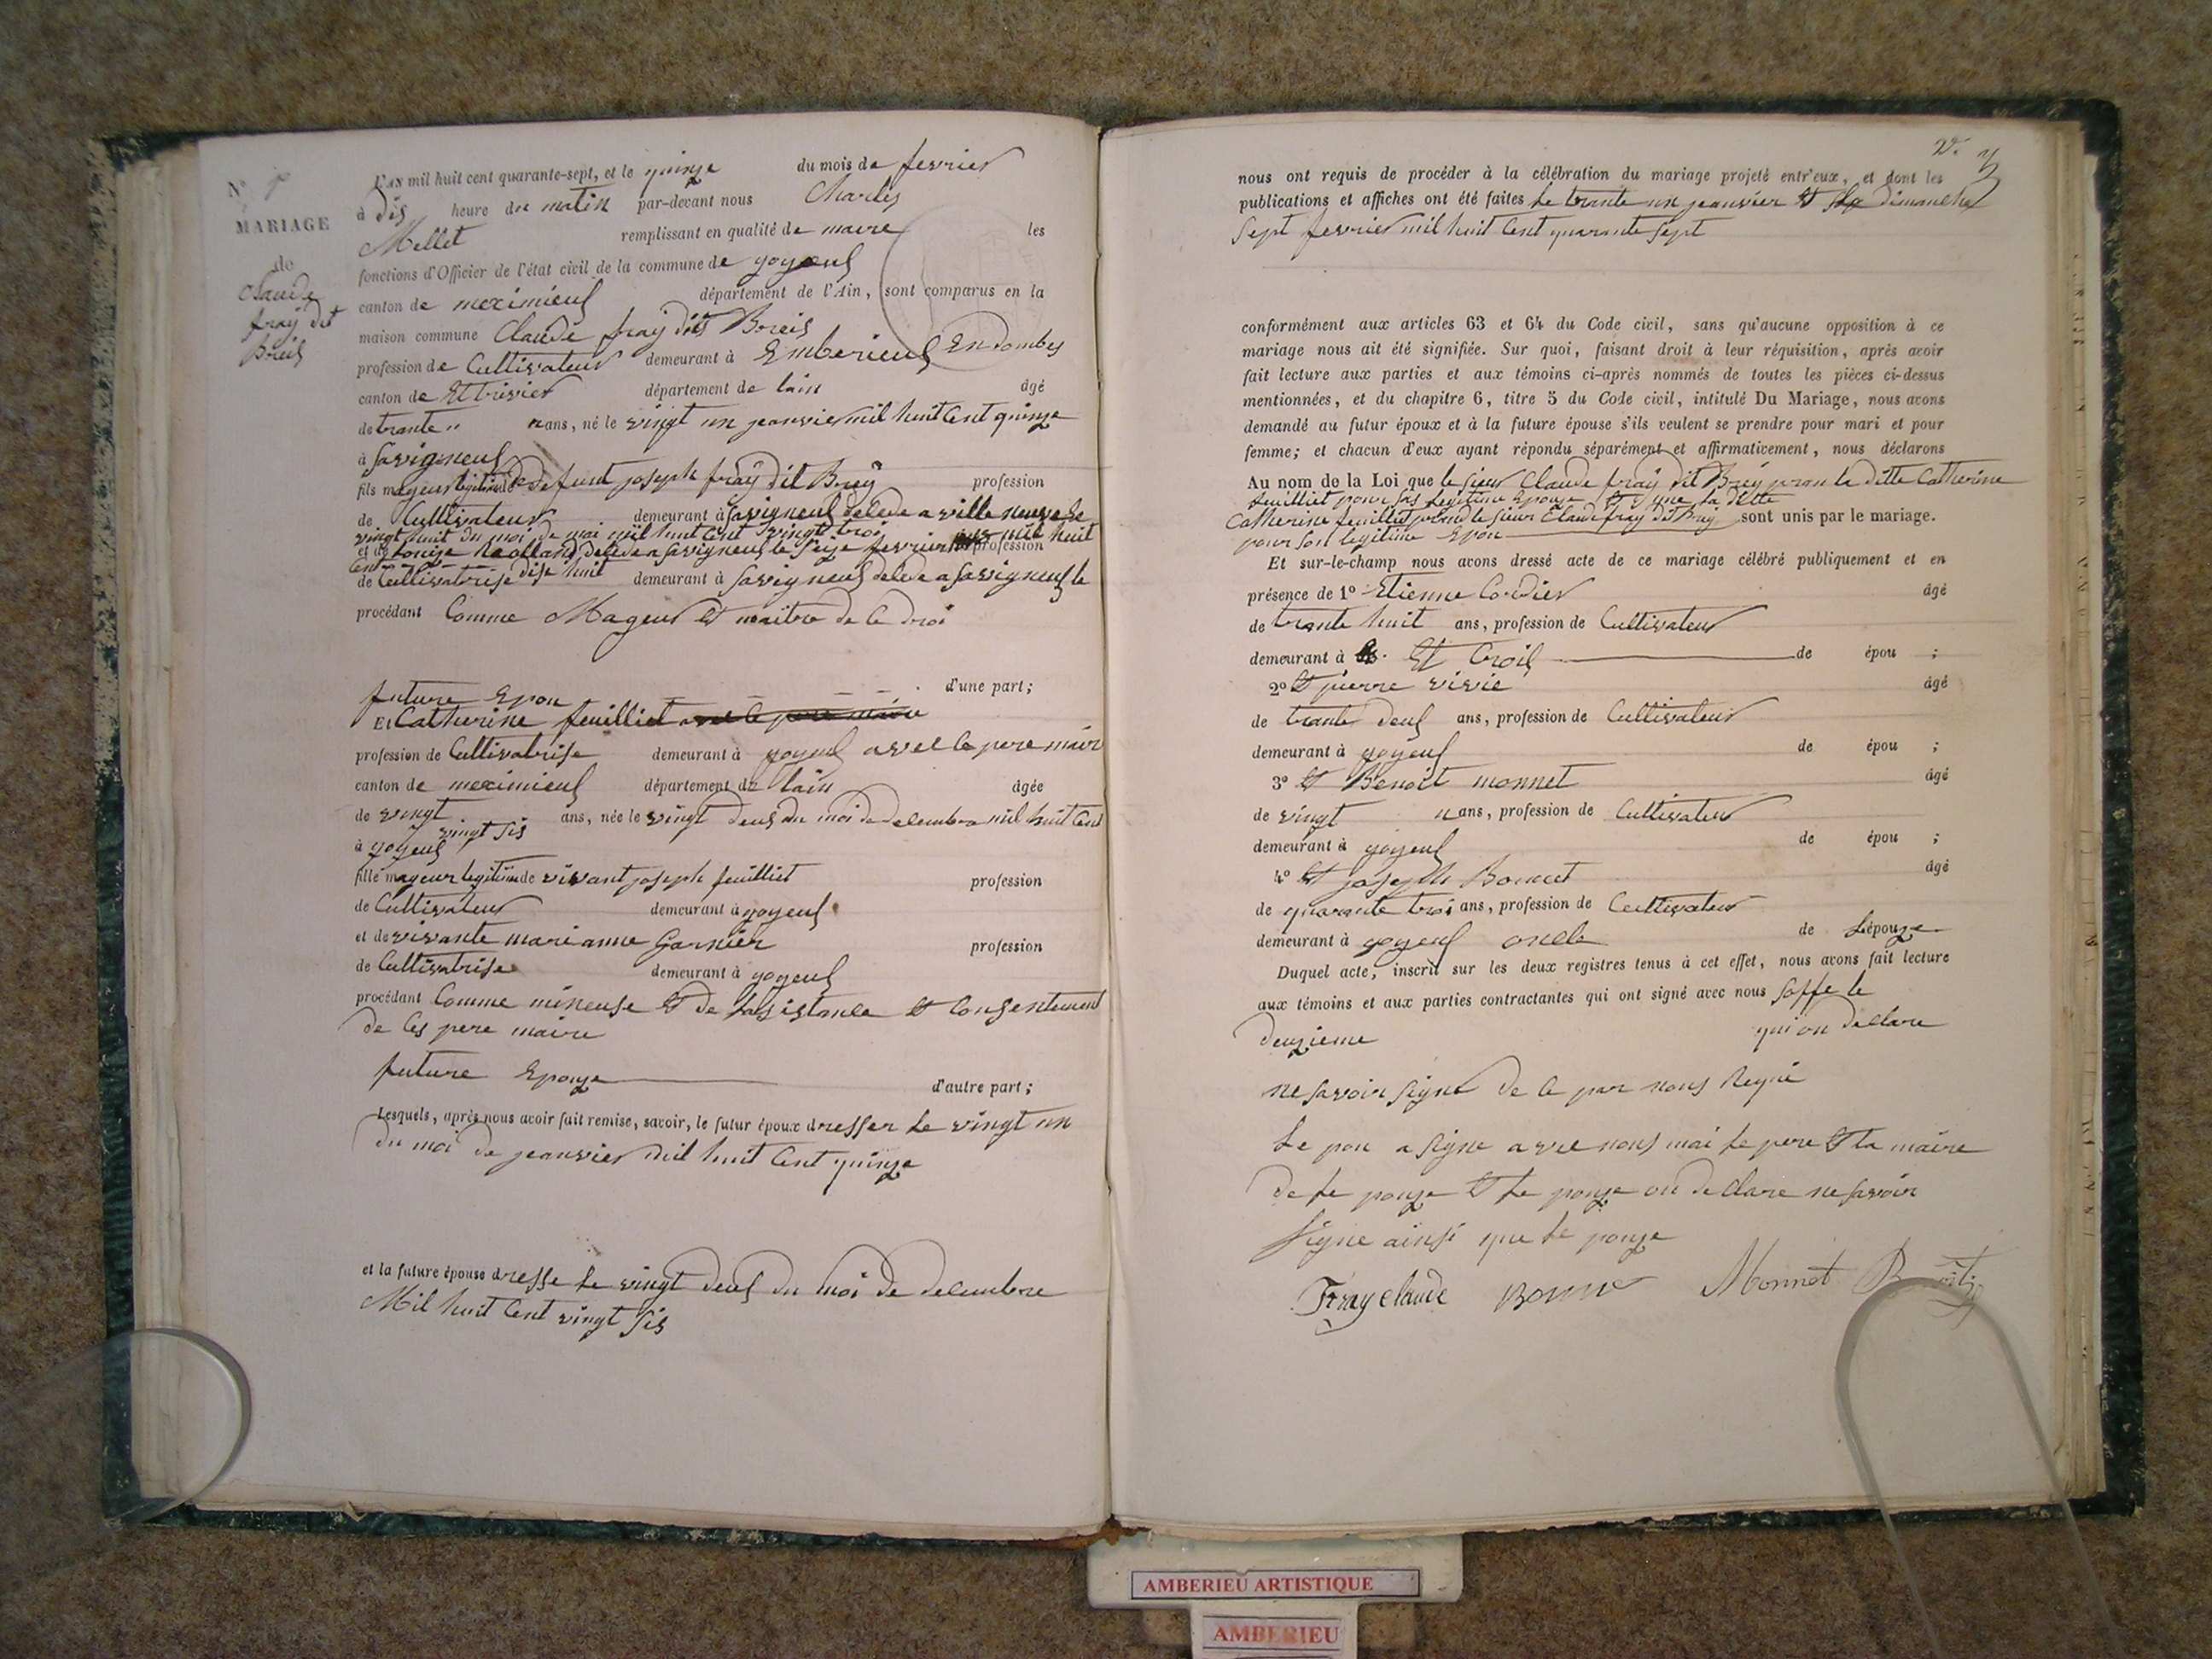 N° 1
MARIAGE
de
Claude
fray dit
Breil
L'AN mil huit cent quarante-sept, et le quinze du mois de fevrier
à dis heure du matin par-devant nous Charles
Mellet remplissant en qualité de maire les
fonctions d'Officier de l'état civil de la commune de joyeus
canton de meximieus département de l'Ain, sont comparus en la
maison commune Claude fray dit Breis
profession de Cultivateur demeurant à Emberieus En dombes
canton de St trivier département de lain âgé
de trante un ans, né le vingt un jeanvier mil huit Cent quinze
à Savigneus
fils mageur legitime de defunt joseph fray dit Brey profession
de Cultivateur demeurant à Savigneus delede a ville neuve le
vingt huit du moi de mai mil huit Cent vingt troi
et de Louise Rolland delede a Savigneus le seize fevrier mil huit profession
Cent dise huit
de Cultivatrise demeurant à Savigneus delede a Savigneus le
procédant Comme Mageur et maitre de Ce droi
future Epou d'une part;
Et Catherine feuilliet avec le pere maire
profession de Cultivatrise demeurant à joyeus avec le pere maire
canton de meximieus département de lain âgée
de vingt ans, née le vingt deus du moi de decembre mil huit Cent
vingt sis
à joyeus
fille mageur legitime de vivant joseph feuilliet profession
de Cultivateur demeurant à joyeus
et de vivante marianne Garnier profession
de Cultivatrise demeurant à joyeus
procédant Comme mineuse et de lasistance et Consentement
de Ces pere maire
future Epouze d'autre part;
Lesquels, après nous avoir fait remise, savoir, le futur époux dresser le vingt un
du moi de jeanvier mil huit Cent quinze
et la future épouse dresse le vingt deus du moi de decembre
Mil huit Cent vingt sis
nous ont requis de procéder à la célébration du mariage projeté entr'eux, et dont les
publications et affiches ont été faites le trante un jeanvier et le dimanche
Sept fevrier mil huit Cent quarante sept
conformément aux articles 63 et 64 du Code civil, sans qu'aucune opposition à ce
mariage nous ait été signifiée. Sur quoi, faisant droit à leur réquisition, après avoir
fait lecture aux parties et aux témoins ci-après nommés de toutes les pièces ci-dessus
mentionnées, et du chapitre 6, titre 5 du Code civil, intitulé Du Mariage, nous avons
demandé au futur époux et à la future épouse s'ils veulent se prendre pour mari et pour
femme; et chacun d'eux ayant répondu séparément et affirmativement, nous déclarons
Au nom de la Loi que le sieur Claude fray dit Brey pran la ditte Catherine
feuilliet pour sas legitime Epouze et que la ditte
Catherine feuilliet prand le sieur Claude fray dit Brey sont unis par le mariage.
pour son legitime Epou
Et sur-le-champ nous avons dressé acte de ce mariage célébré publiquement et en
présence de 1° Etienne Cordier âgé
de trante huit ans, profession de Cultivateur
demeurant à St Croil de épou ;
2° et pierre vivie âgé
de trante deus ans, profession de Cultivateur
demeurant à joyeus de épou ;
3° et Benoit monnet âgé
de vingt ans, profession de Cultivateur
demeurant à joyeus de épou ;
4° et joseph Bonnet âgé
de quarante troi ans, profession de Cultivateur
demeurant à joyeus oncle de Lépouze
Duquel acte, inscrit sur les deux registres tenus à cet effet, nous avons fait lecture
aux témoins et aux parties contractantes qui ont signé avec nous soffe le
deuzieme qui on declare
ne savoir signe de Ce par nous Requi
Le pou a signe avec nous mai le pere et la maire
de le pouze et le pouze on declare ne savoir
signe ainsi que le pouze
Fray Claude Monnet
AMBERIEU ARTISTIQUE
AMBERIEU